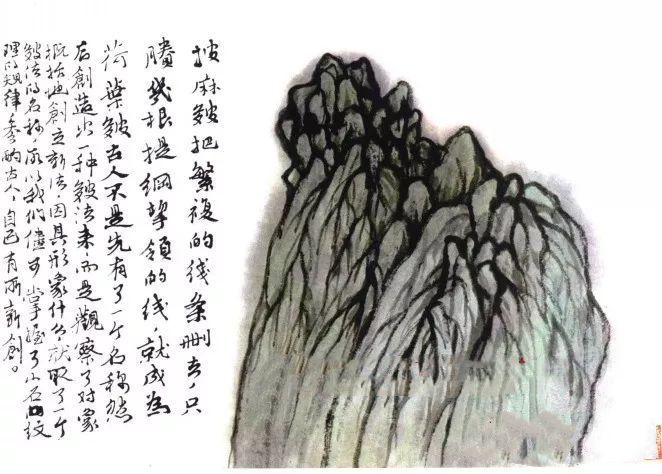 披麻皴把繁複的线条删去，只
賸幾根提綱挈領的线，就成為
荷葉皴古人不是先有了一个名称然
后創造出一种皴法来，而是觀察了对象
概括地創立新法，因其形象什么，就取了一个
皴法的名称，所以我们儘可掌握了山石的纹
理的規律参酌古人，自己有所新創。